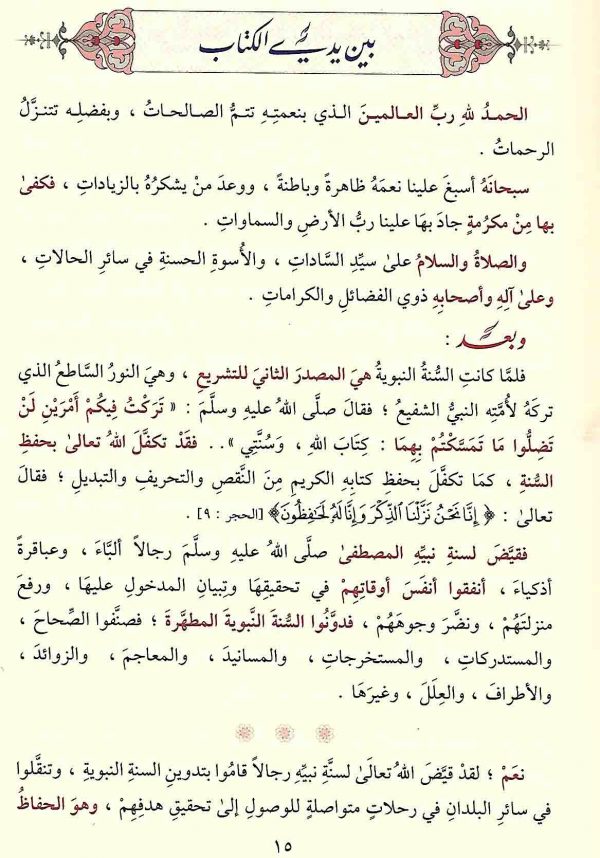 بين يدي الكتاب
الحمدُ للهِ ربِّ العـالميـنَ الـذي بنعمتِـهِ تتـمُّ الصـالحـاتُ ، وبفضلِـه تتنـزَّلُ
الرحماتُ .
سبحانَهُ أسبغَ علينا نعمَهُ ظاهرةً وباطنةً ، ووعدَ منْ يشكرُهُ بالزياداتِ ، فكفىٰ
بها مِنْ مكرُمةٍ جادَ بهَا علينا ربُّ الأرضِ والسماواتِ .
والصلاةُ والسلامُ علىٰ سيِّدِ السَّاداتِ ، والأُسوةِ الحسنةِ في سائرِ الحالاتِ ،
وعلىٰ آلِهِ وأصحابِهِ ذوي الفضائلِ والكراماتِ .
وبعد :
فلمَّا كانتِ السُّنةُ النبويةُ هيَ المصدرَ الثانيَ للتشريعِ ، وهيَ النورُ السَّاطعُ الذي
تركَهُ لأُمَّتِه النبيُّ الشفيعُ ؛ فقالَ صلَّى اللهُ عليهِ وسلَّمَ : « تَرَكْتُ فِيكُمْ أَمْرَيْنِ لَنْ
تَضِلُّوا مَا تَمَسَّكْتُمْ بِهِمَا : كِتَابَ اللهِ ، وَسُنَّتِي » .. فقَدْ تكفَّلَ اللهُ تعالىٰ بحفظِ
السُّنةِ ، كمَا تكفَّلَ بحفظِ كتابِهِ الكريمِ مِنَ النَّقصِ والتحريفِ والتبديلِ ؛ فقالَ
تعالىٰ : ﴿ إِنَّا نَحْنُ نَزَّلْنَا ٱلذِّكْرَ وَإِنَّا لَهُۥ لَحَـٰفِظُونَ﴾ [الحجر : ٩] .
فقيَّضَ لسنةِ نبيِّهِ المصطفىٰ صلَّى اللهُ عليهِ وسلَّمَ رجالاً ألبَّاءَ ، وعباقرةً
أذكياءَ ، أنفقوا أنفَسَ أوقاتِهِمْ في تحقيقِهَا وتِبيانِ المدخولِ عليهَا ، ورفعَ
منزلتَهُمْ ، ونضَّرَ وجوهَهُمْ ، فدوَّنُوا السُّنةَ النَّبويةَ المطهَّرةَ ؛ فصنَّفوا الصِّحاحَ ،
والمستدركاتِ ، والمستخرجاتِ ، والمسانيدَ ، والمعاجمَ ، والزوائدَ ،
والأطرافَ ، والعِلَلَ ، وغيرَهَا .
نعَمْ ؛ لقدْ قيَّضَ اللهُ تعالَىٰ لسنَّةِ نبيِّهِ رجالاً قامُوا بتدوينِ السنةِ النبويةِ ، وتنقَّلوا
في سائرِ البلدانِ في رحلاتٍ متواصلةٍ للوصولِ إلىٰ تحقيقِ هدفِهِمْ ، وهوَ الحفاظُ
١٥